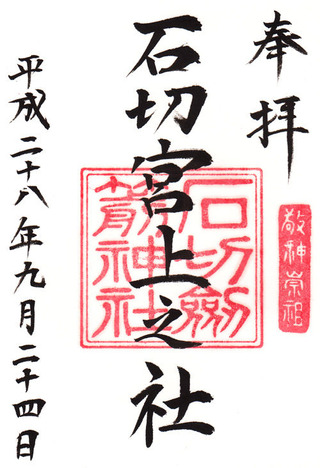 奉拝
敬神崇祖
石切宮上之社
石切劔
箭神社
平成二十八年九月二十四日